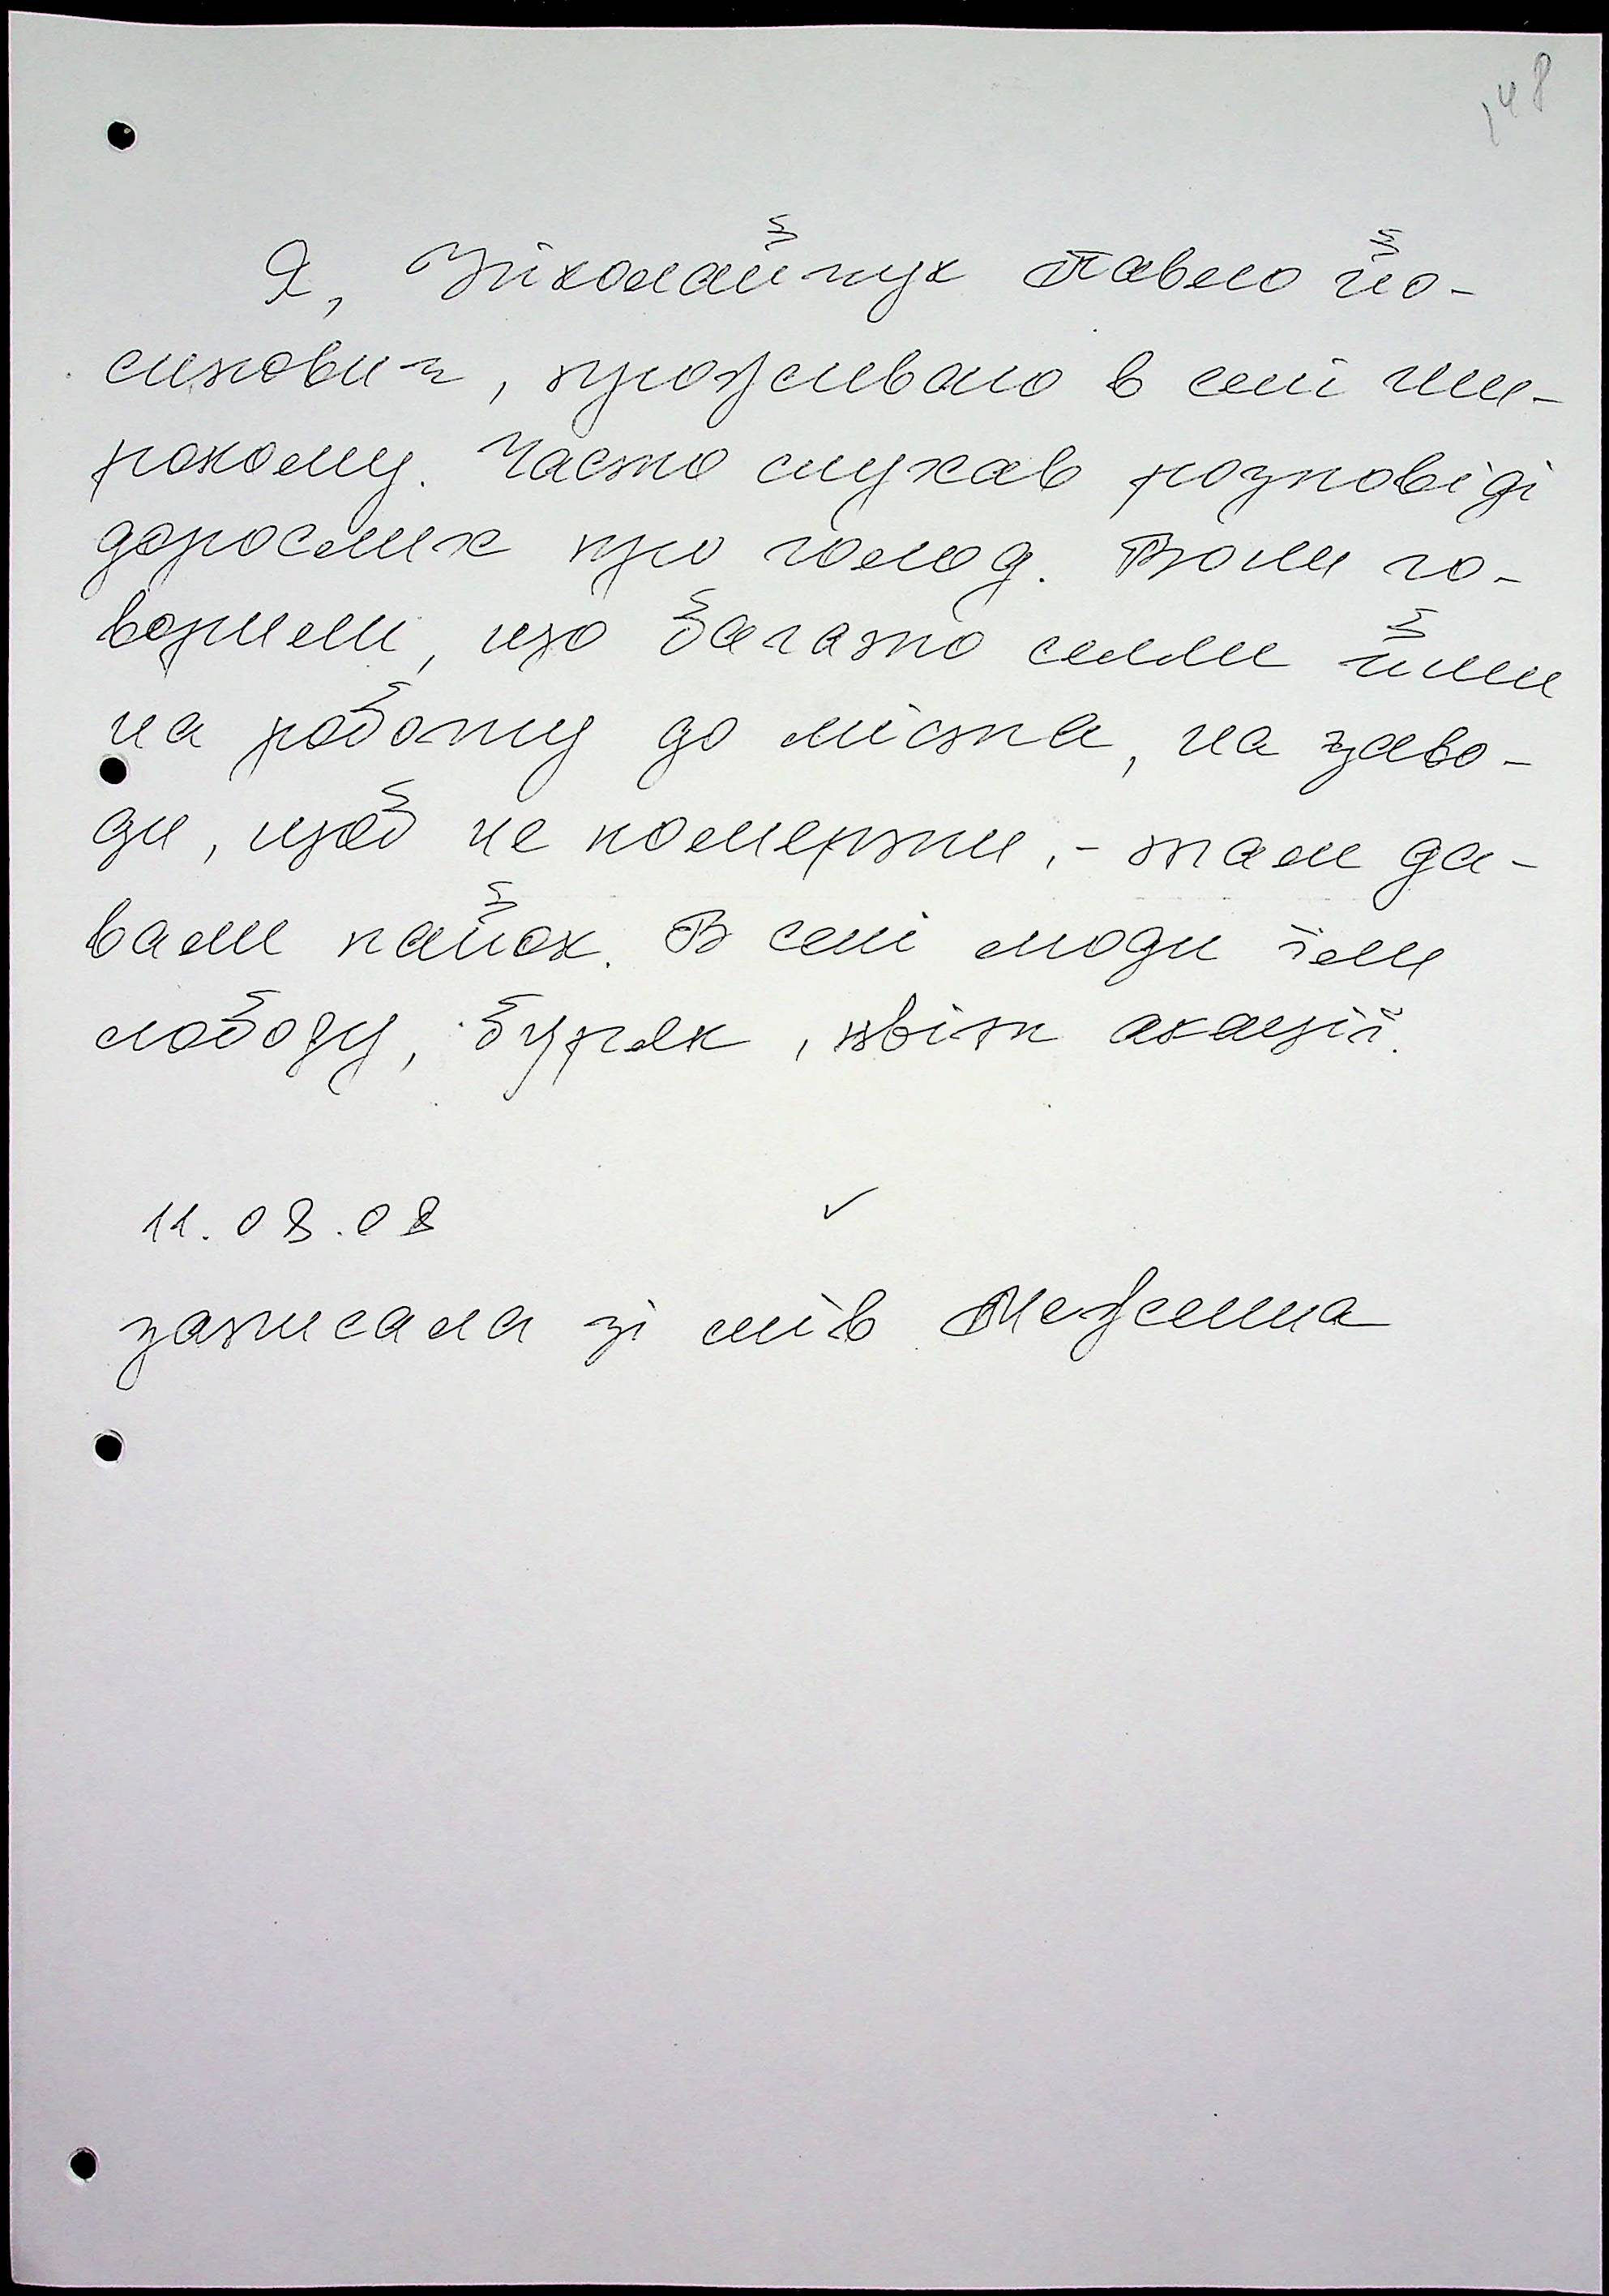 148
Я, Ніколайчук Павло Йо-
сипович, проживаю в селі Ши-
рокому. Часто слухав розповіді
дорослих про голод. Вони го-
ворили, що багато сімей йшли
на роботу до міста, на заво-
ди, щоб не померти, - там да-
вали пайок. В селі люди їли
лободу, буряк, квіти акації.
11.08.08
записала зі слів